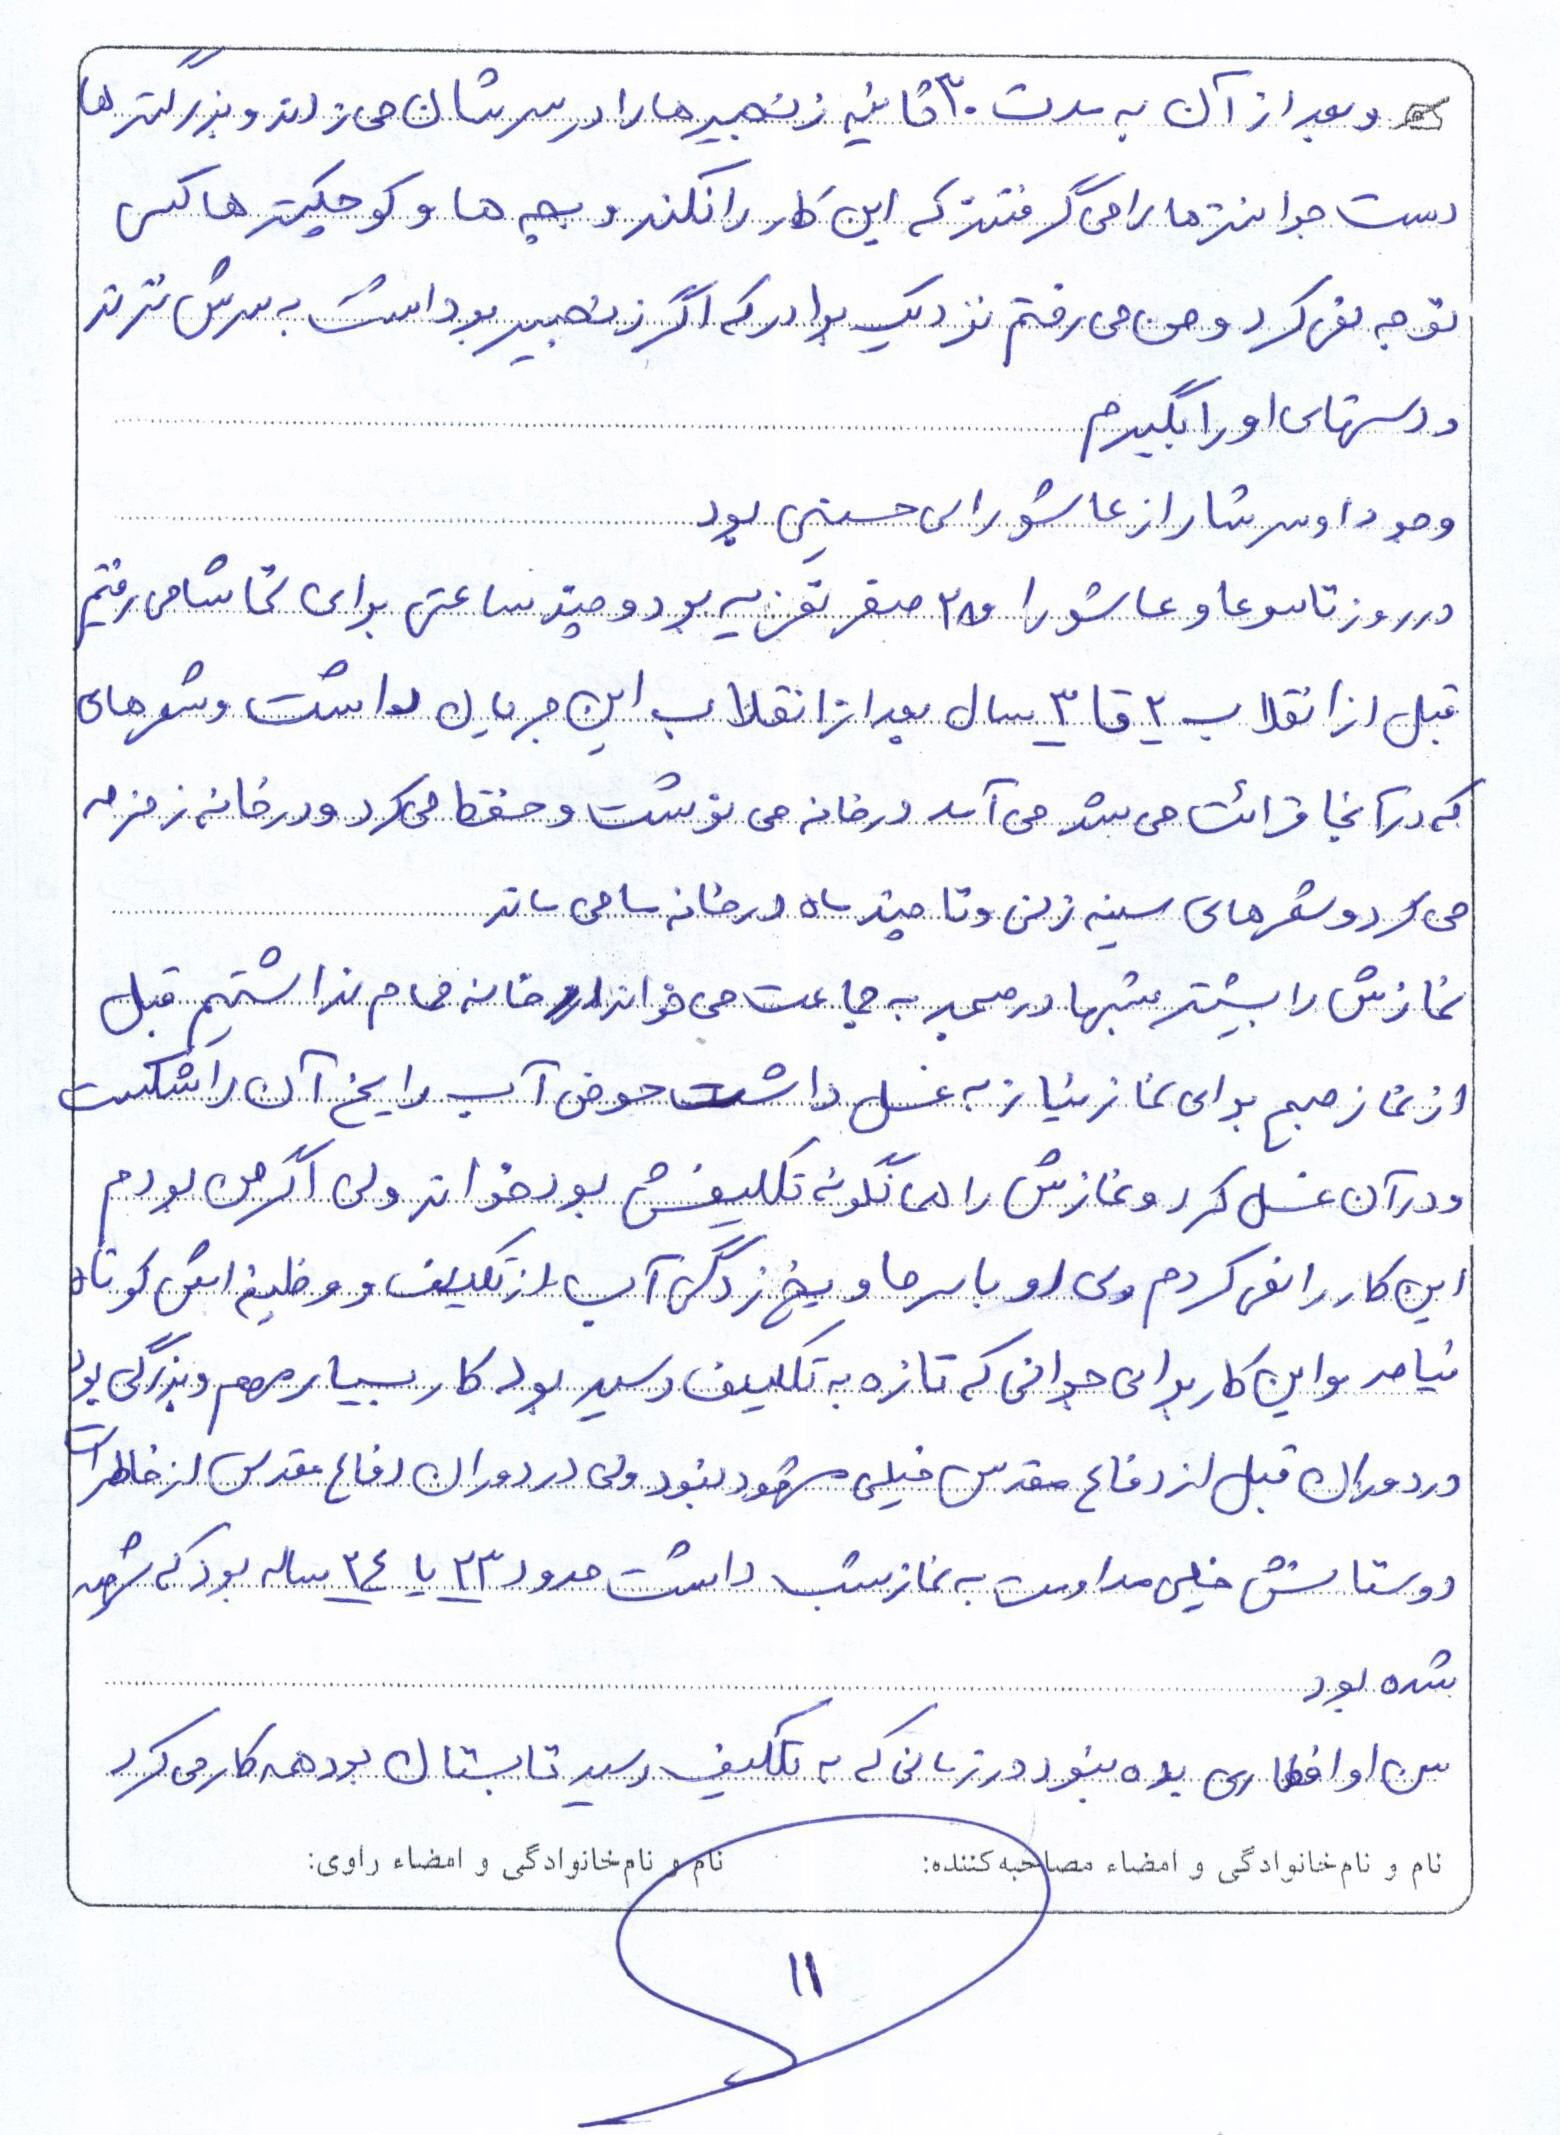 و بعد از آن به مدت ۳۰ ثانیه زنجیرها را در سرشان می زدند و بزرگترها
دست جوانترها را می گرفتند که این کار را نکند و بچه ها و کوچکترها کسی
توجه نمی کرد و من می رفتم نزدیک برادر که اگر زنجیر برداشت به سرش نزند
و دستهای او را بگیرم
وجود او سرشار از عاشورای حسینی بود
در روز تاسوعا و عاشورا و ۲۸ صفر تعزیه بود و چند ساعتی برای تماشا می رفتیم
قبل از انقلاب ۲ تا ۳ سال بعد از انقلاب این جریان داشت و شعرهای
که در آنجا قرائت می شد می آمد در خانه می نوشت و حفظ می کرد و در خانه زمزمه
می کرد و شعرهای سینه زنی و تا چند ماه در خانه ما می ماند
نمازش را بیشتر شبها در مسجد به جماعت می خواند در خانه حمام نداشتیم قبل
از نماز صبح برای نماز نیاز به غسل داشت حوض آب را یخ آن را شکست
و در آن غسل کرد و نمازش را همانگونه تکلیفش بود خواند ولی اگر من بودم
این کار را نمی کردم ولی او با سرما و یخ زدگی آب از تکلیف و وظیفه اش کوتاه
نیامد و این کار برای جوانی که تازه به تکلیف رسید بود کار بسیار مهم و بزرگی بود
در دوران قبل از دفاع مقدس خیلی مشهود نبود ولی در دوران دفاع مقدس از خاطرات
دوستانش خیلی مداومت به نماز شب داشت حدود ۲۳ یا ۲۴ ساله بود که شهید
شده بود
سن او افطاری بده نبود در زمانی که به تکلیف رسید تابستان بود همه کار می کرد
نام و نام خانوادگی و امضاء مصاحبه کننده: نام و نام خانوادگی و امضاء راوی:
۱۱